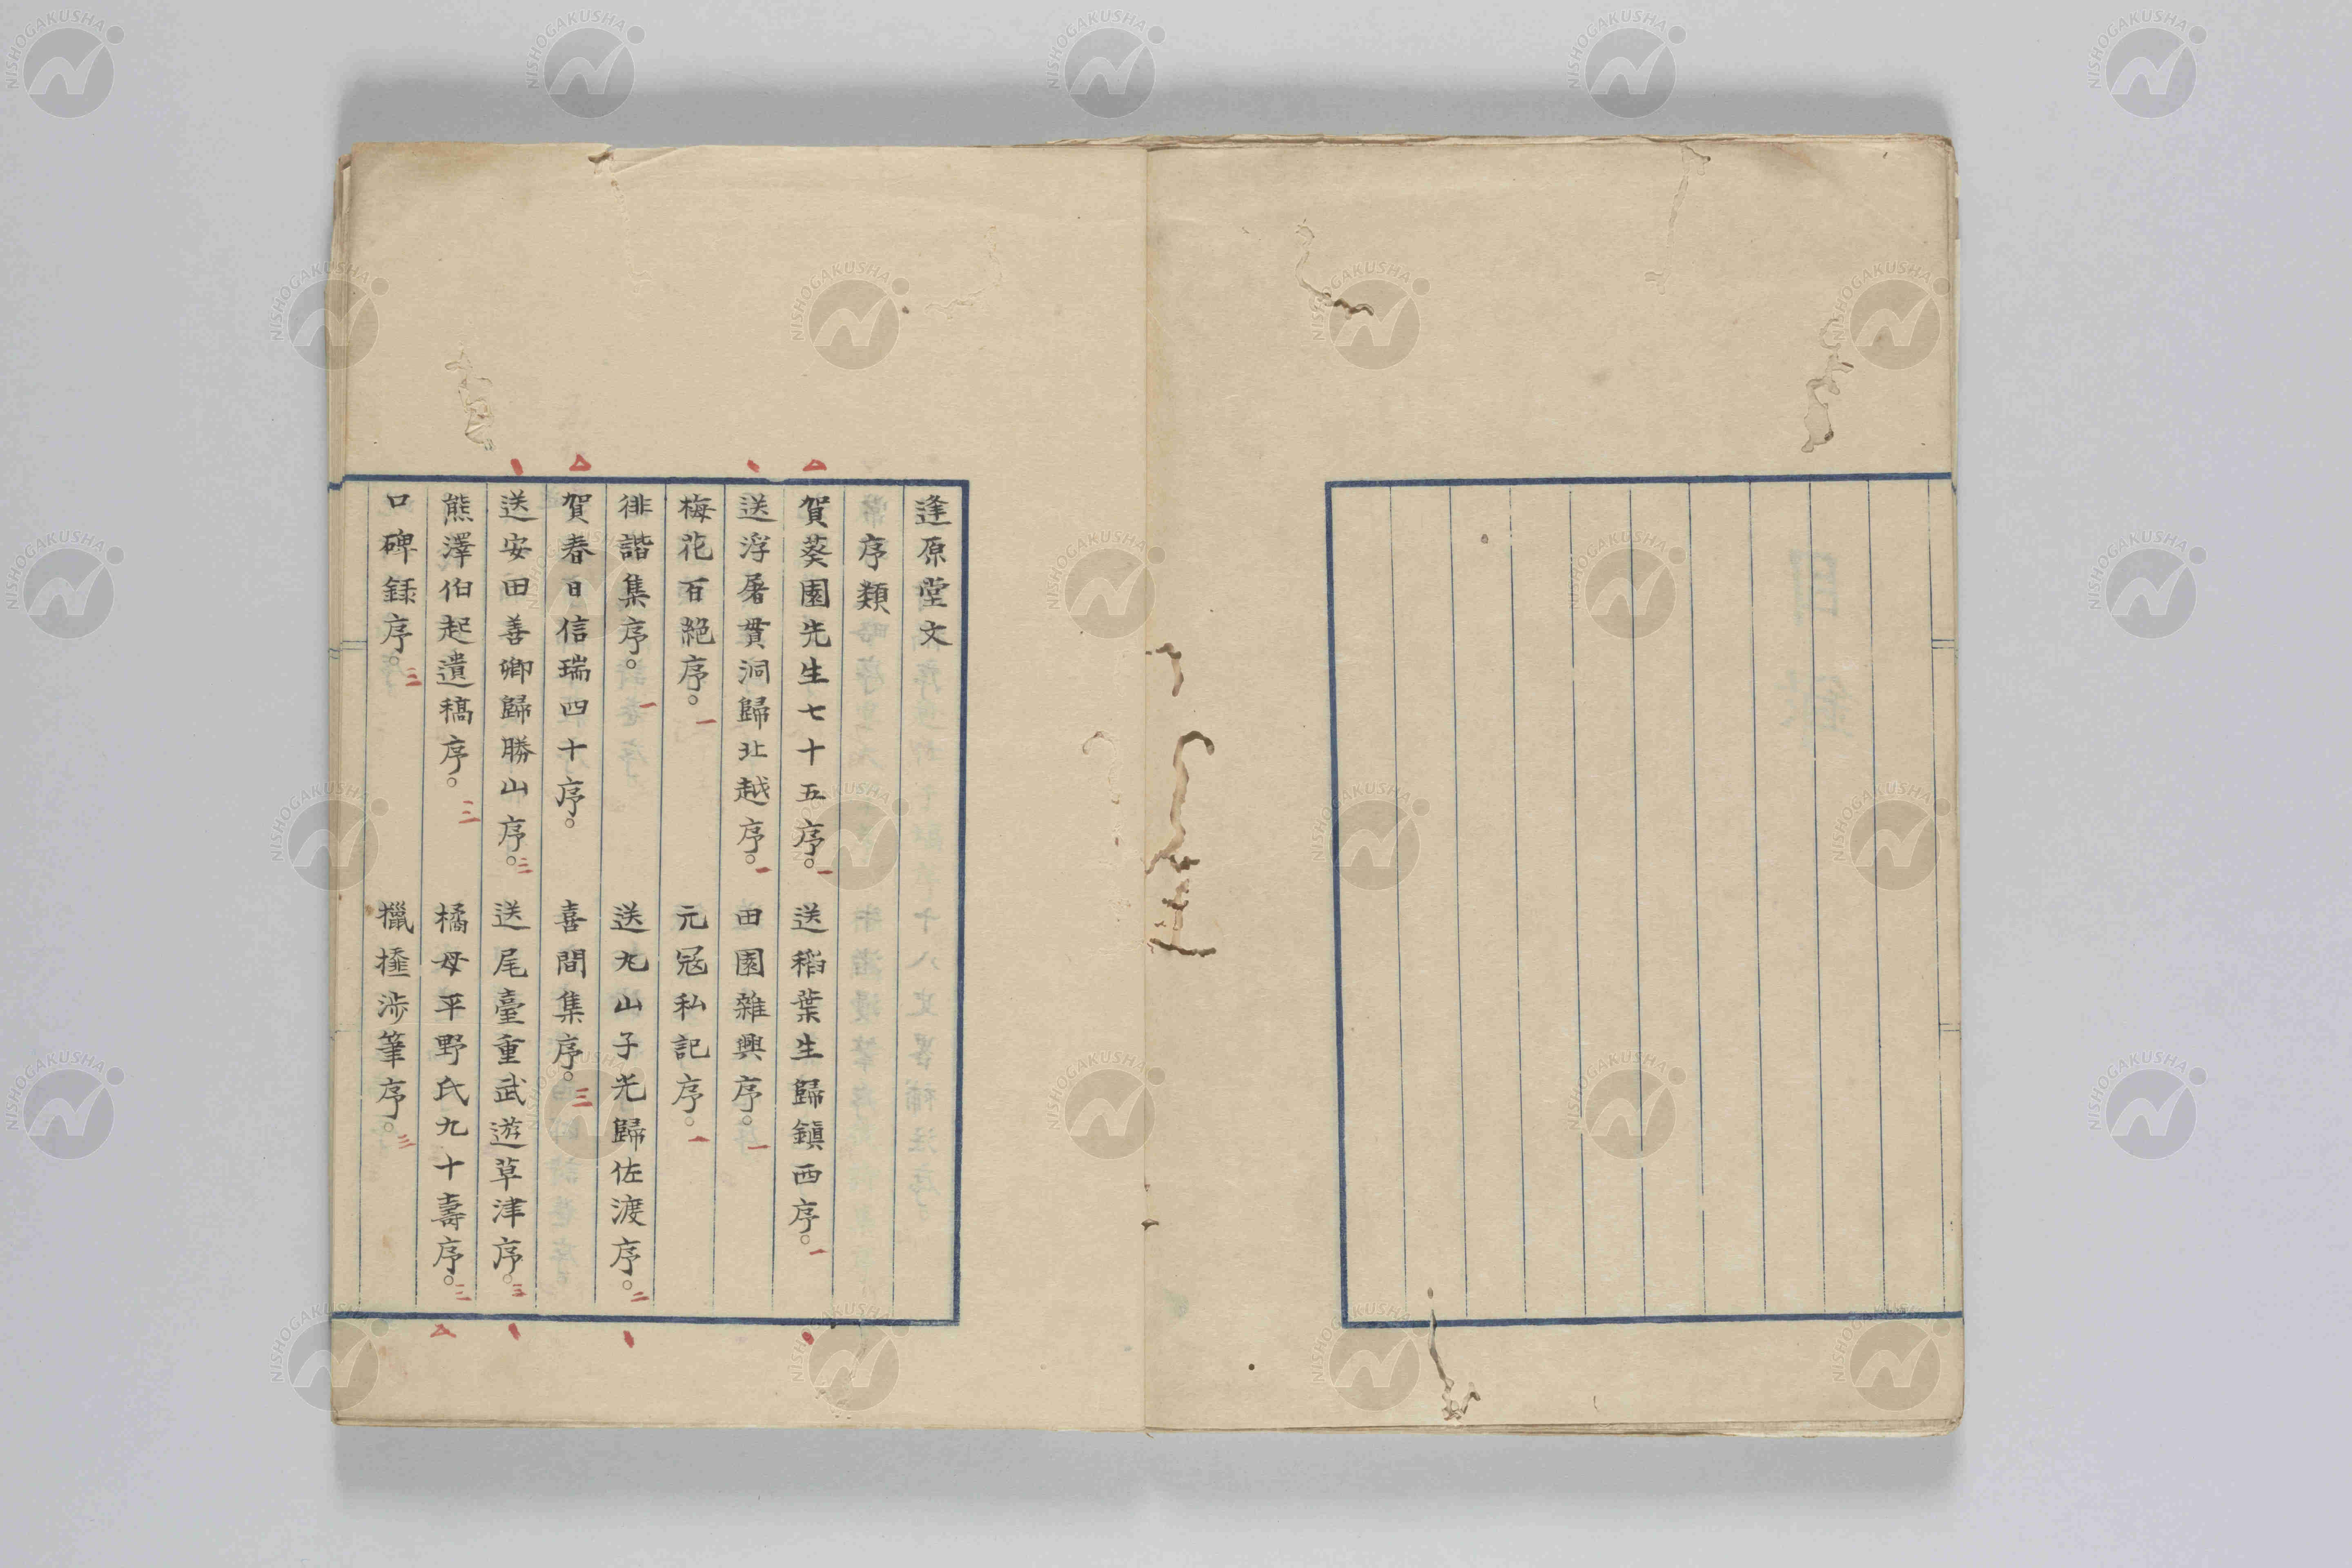 逢原堂文
序類
賀葵園先生七十五序。一
送稻葉生歸鎮西序。一
送浮屠貫洞歸北越序。一
田園雜興序。一
梅花百絶序。一
元冠私記序。一
徘諧集序。一
送丸山子光歸佐渡序。二
賀春日信瑞四十序。
喜間集序。三
送安田善卿歸勝山序。二
送尾臺重武遊草津序。三
熊澤伯起遺稿序。二
橘母平野氏九十壽序。三
口碑録序。三
獵 渉筆序。三
NISHOGAKUSHA